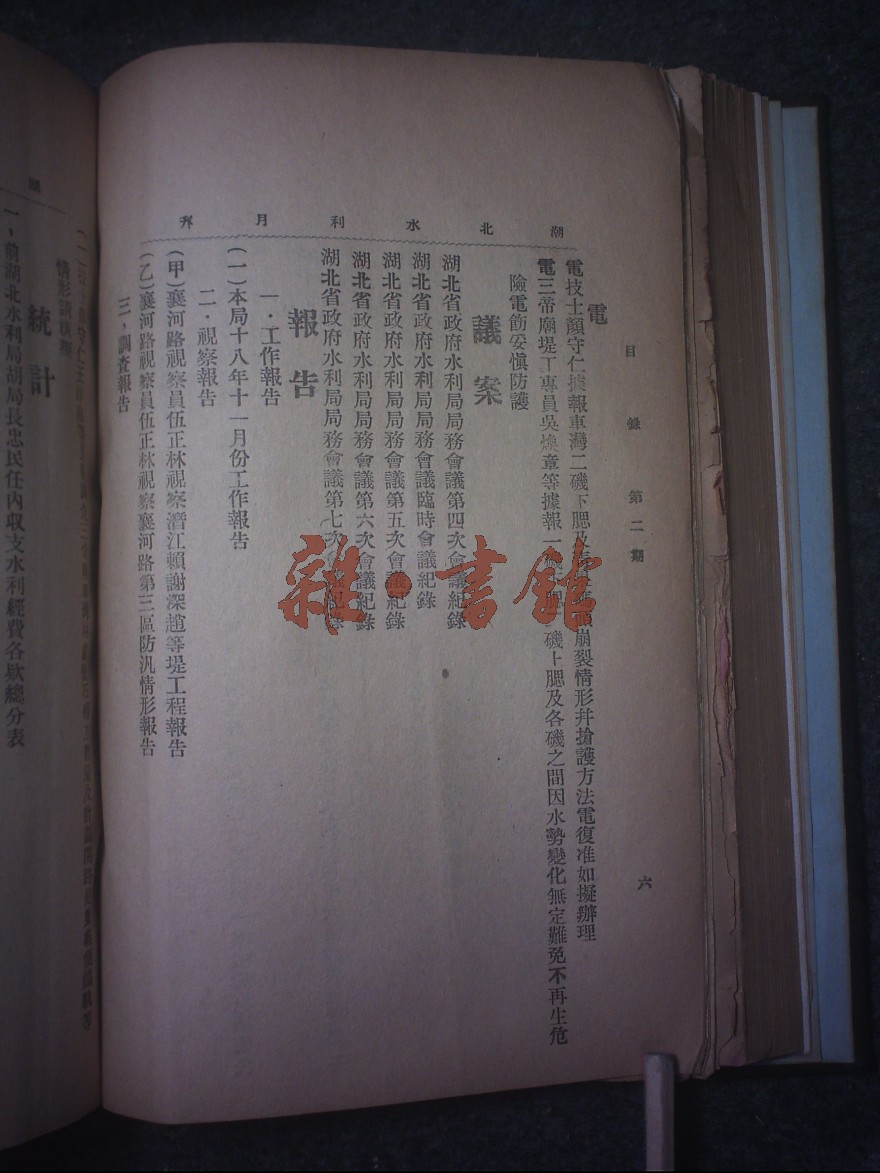 湖北水利月刊
目錄 第二期
六
電
電技士顏守仁據報車灣二磯下腮及 崩裂情形并搶護方法電復准如擬辦理
電三帝廟堤工專員吳煥章等據報一磯下腮 磯上腮及各磯之間因水勢變化無定難免不再生危
險電飭妥慎防護
議案
湖北省政府水利局局務會議第四次會議紀錄
湖北省政府水利局局務會議臨時會議紀錄
湖北省政府水利局局務會議第五次會議紀錄
湖北省政府水利局局務會議第六次會議紀錄
湖北省政府水利局局務會議第七次會議紀錄
報告
一．工作報告
(一)本局十八年十一月份工作報告
二．視察報告
(甲)襄河路視察員伍正林視察潛江賴謝深趙等堤工程報告
(乙)襄河路視察員伍正林視察襄河路第三區防汎情形報告
三．調查報告
情形請核
統計
一，前湖北水利局胡局長忠民任內収支水利經費各欵總分表
雜·書館